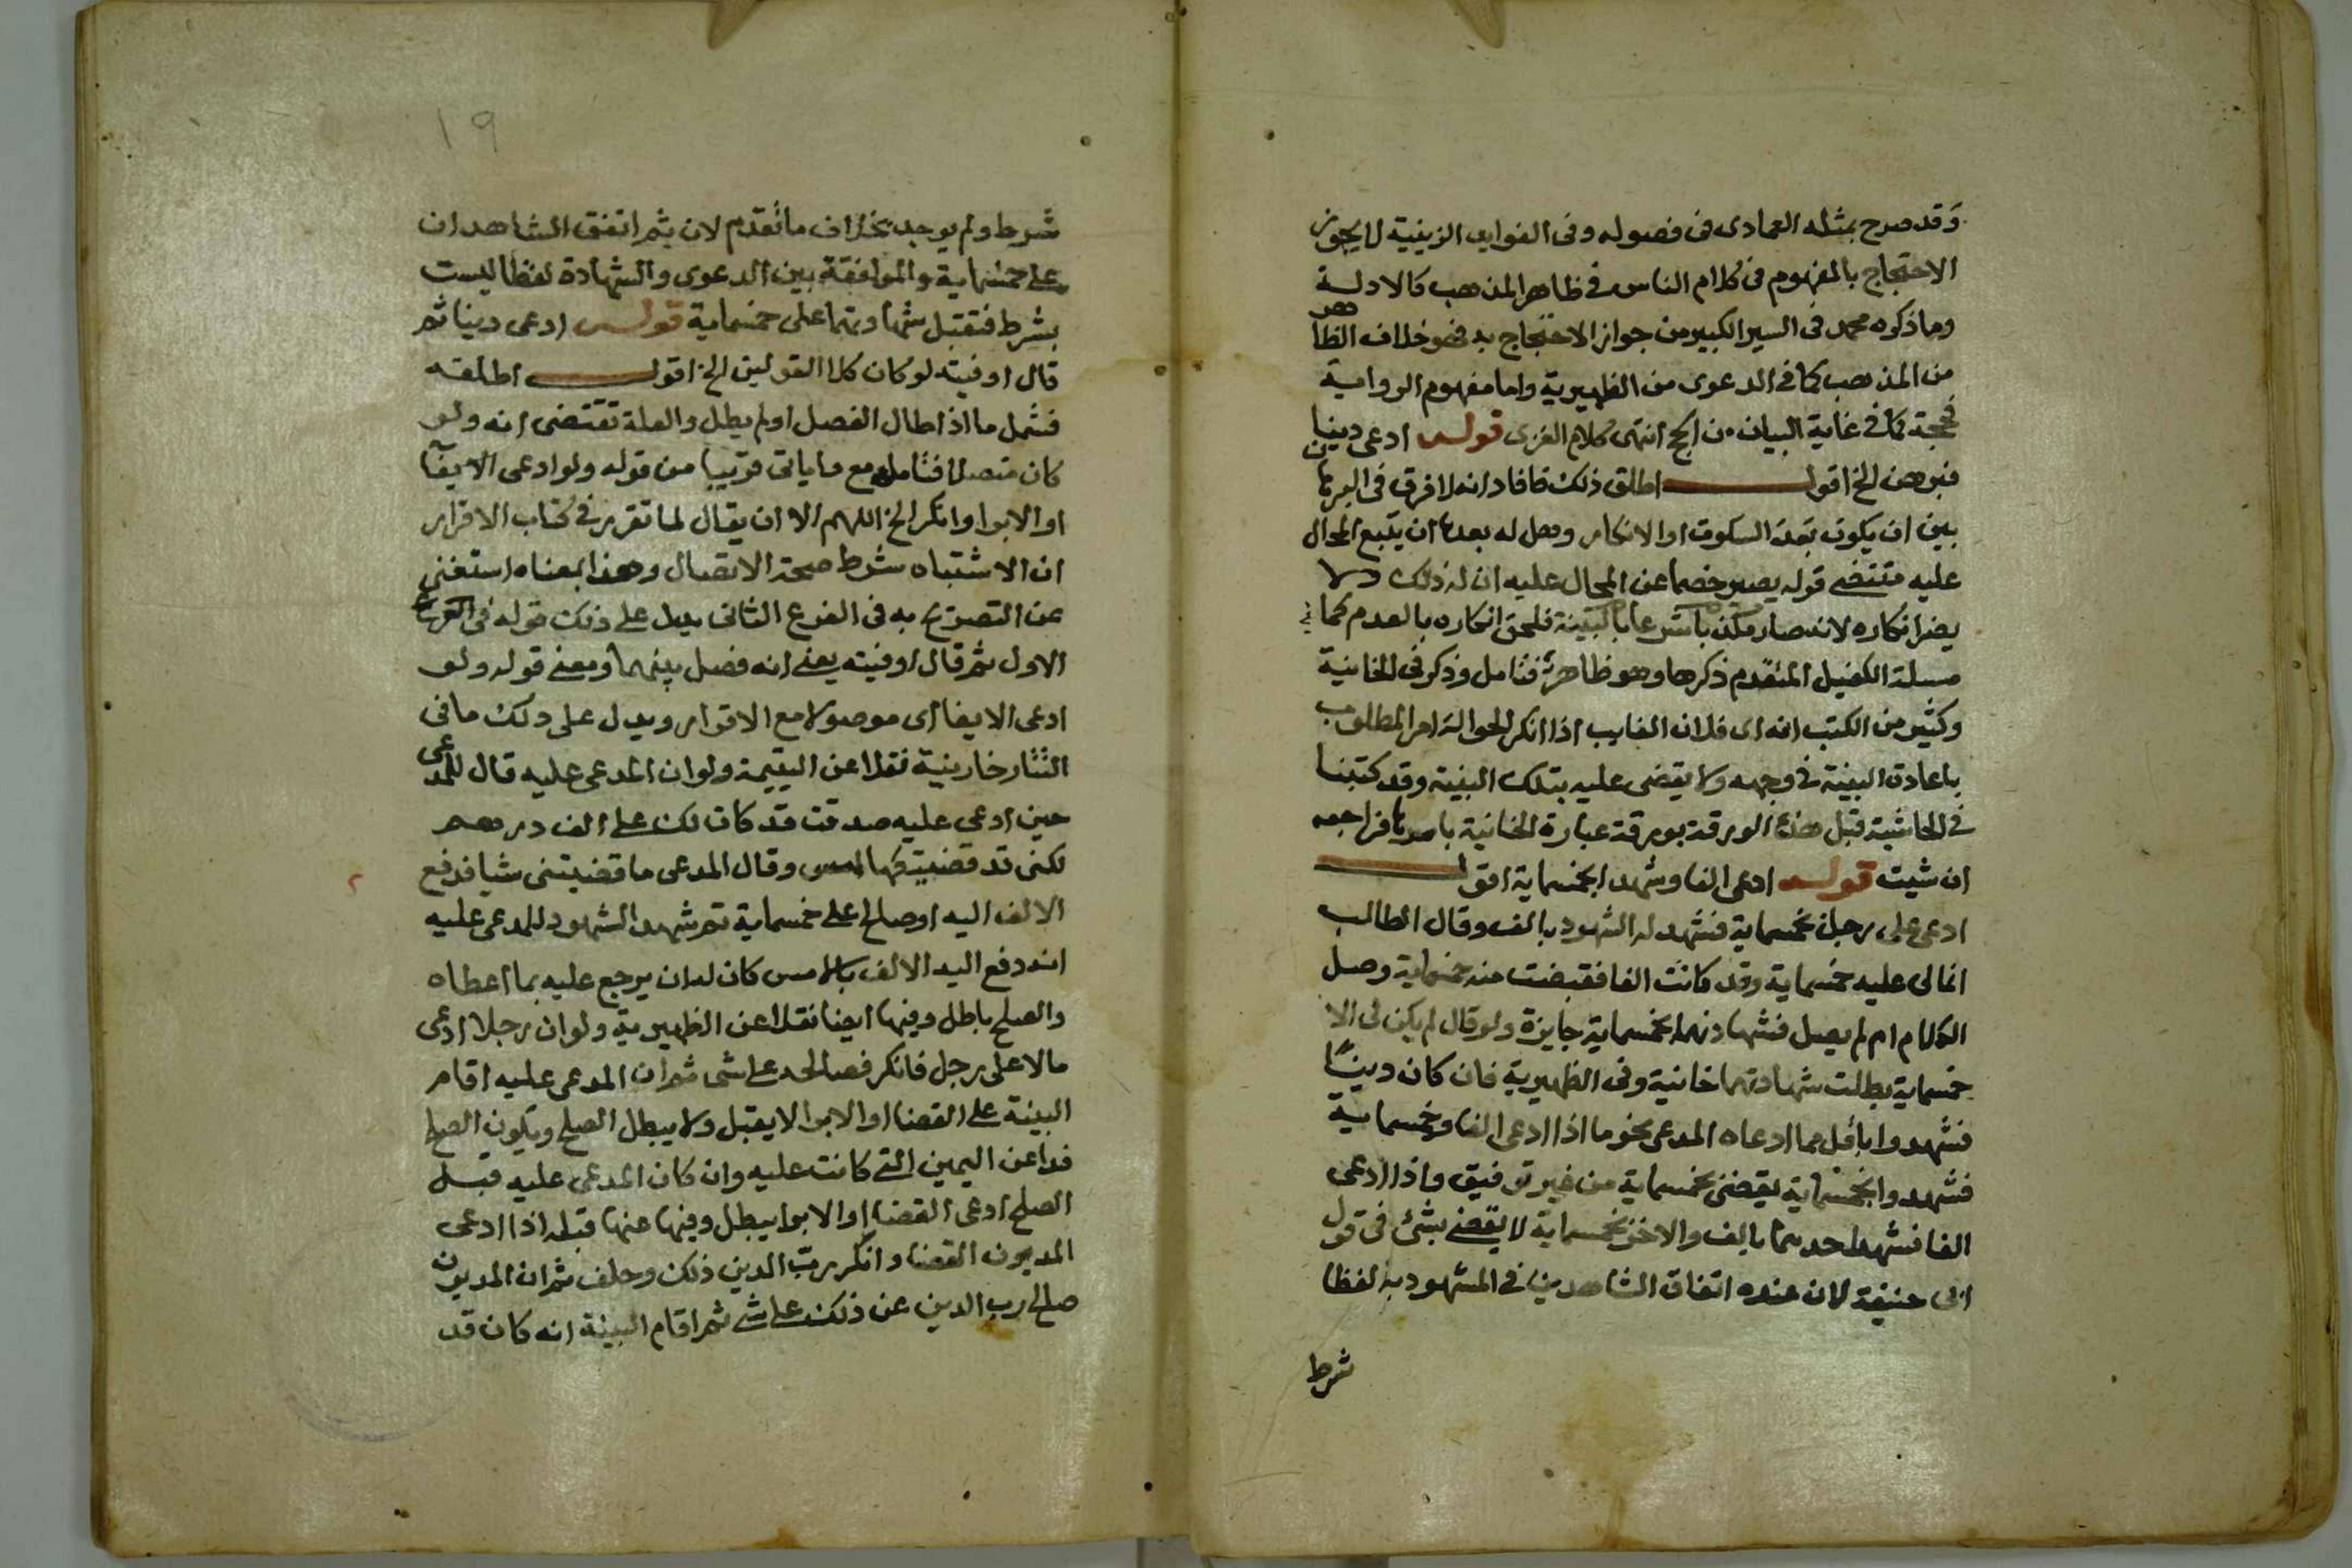 وقد صرح بمثله العمادى فى فصوله وفى الفوايد الزينية لا يجوز
الاحتجاج بالمفهوم فى كلام الناس فى ظاهر المذهب كالادلة
وما ذكره محمد فى السير الكبير من جواز الاحتجاج به فهو خلاف الظاهر
من المذهب كما فى الدعوى من الظهيرية واما مفهوم الرواية
فحجة كما فى غاية البيان من الحج انتهى كلام الغزى قوله ادعى دينا
فبرهن الخ اقول اطلق ذلك فافاد انه لا فرق فى
بين ان يكون بعد السكوت او الانكار وهل له بعدها ان يتبع المحال
عليه مقتضى قوله يصير خصما عن المحال عليه ان له ذلك ولا
يضر انكاره لانه صار مكذبا شرعا بالبينة فلحق انكاره بالعدم كما فى
مسلة الكفيل المتقدم ذكرها وهو ظاهر فتامل وذكر فى الخانية
وكثير من الكتب انه اى فلان الغايب اذا انكر الحوالة امر المطلوب
باعادة البينة فى وجهه ولا يقضى عليه بتلك البينة وقد كتبنا
فى الحاشية قبل هذه الورقة بورقة عبارة الخانية فراجعه
ان شيت قوله ادعى الفا وشهدا بخمسماية اقول
ادعى على رجل خمسماية فشهد له الشهود بالف وقال الطالب
انما لى عليه خمسماية وقد كانت الفا فقبضت منه خمسماية وصل
الكلام ام لم يصل فشهادتهما بخمسماية جايزة ولو قال لم يكن لى الا
خمسماية بطلت شهادتهما خانية وفى الظهيرية فان كان دينا
فشهدوا باقل مما ادعاه المدعى نحو ما اذا ادعى الفا وخمسماية
فشهدوا بخمسماية يقضى بخمسماية من غير توفيق واذا ادعى
الفا فشهد احدهما بالف والاخر بخمسماية لا يقضى بشئ فى قول
ابى حنيفة لان عنده اتفاق الشاهدين فى المشهود به لفظا
شرط
١٩
شرط ولم يوجد بخلاف ما تقدم لان ثم اتفق الشاهدان
على خمسماية والموافقة بين الدعوى والشهادة لفظا ليست
بشرط فتقبل شهادتهما على خمسماية قوله ادعى دينا ثم
قال اوفيته لو كان كلا القولين الخ اقول اطلقه
فشمل ما اذا طال الفصل او لم يطل والعلة تقتضى انه ولو
كان متصلا فتامله مع ما ياتى قريبا من قوله ولو ادعى الايفا
او الابرا وانكر الخ اللهم الا ان يقال لما تقرر فى كتاب الاقرار
ان الاشتباه شرط صحة الاتصال وهذا بمعناه استغنى
عن التصريح به فى الفرع الثانى يدل على ذلك قوله فى الفرع
الاول ثم قال اوفيته يعنى انه فصل بينهما ومعنى قوله ولو
ادعى الايفا اى موصولا مع الاقرار ويدل على ذلك ما فى
التتارخانية نقلا عن اليتيمة ولو ان المدعى عليه قال للمدعى
حين ادعى عليه صدقت قد كان لك على الف درهم
لكنى قد قضيتكها امس وقال المدعى ما قضيتنى شيا فدفع
الالف اليه او صالح على خمسماية ثم شهد الشهود للمدعى عليه
انه دفع اليه الالف بالامس كان له ان يرجع عليه بما اعطاه
والصلح باطل وفيها ايضا نقلا عن الظهيرية ولو ان رجلا ادعى
مالا على رجل فانكر فصالحه على شئ ثم ان المدعى عليه اقام
البينة على القضا او الابرا لا يقبل ولا يبطل الصلح ويكون الصلح
فدا عن اليمين التى كانت عليه وان كان المدعى عليه قبل
الصلح ادعى القضا او الابرا يبطل وفيها عنها قبله اذا ادعى
المديون القضا وانكر رب الدين ذلك وحلف ثم ان المديون
صالح رب الدين عن ذلك على شئ ثم اقام البينة انه كان قد